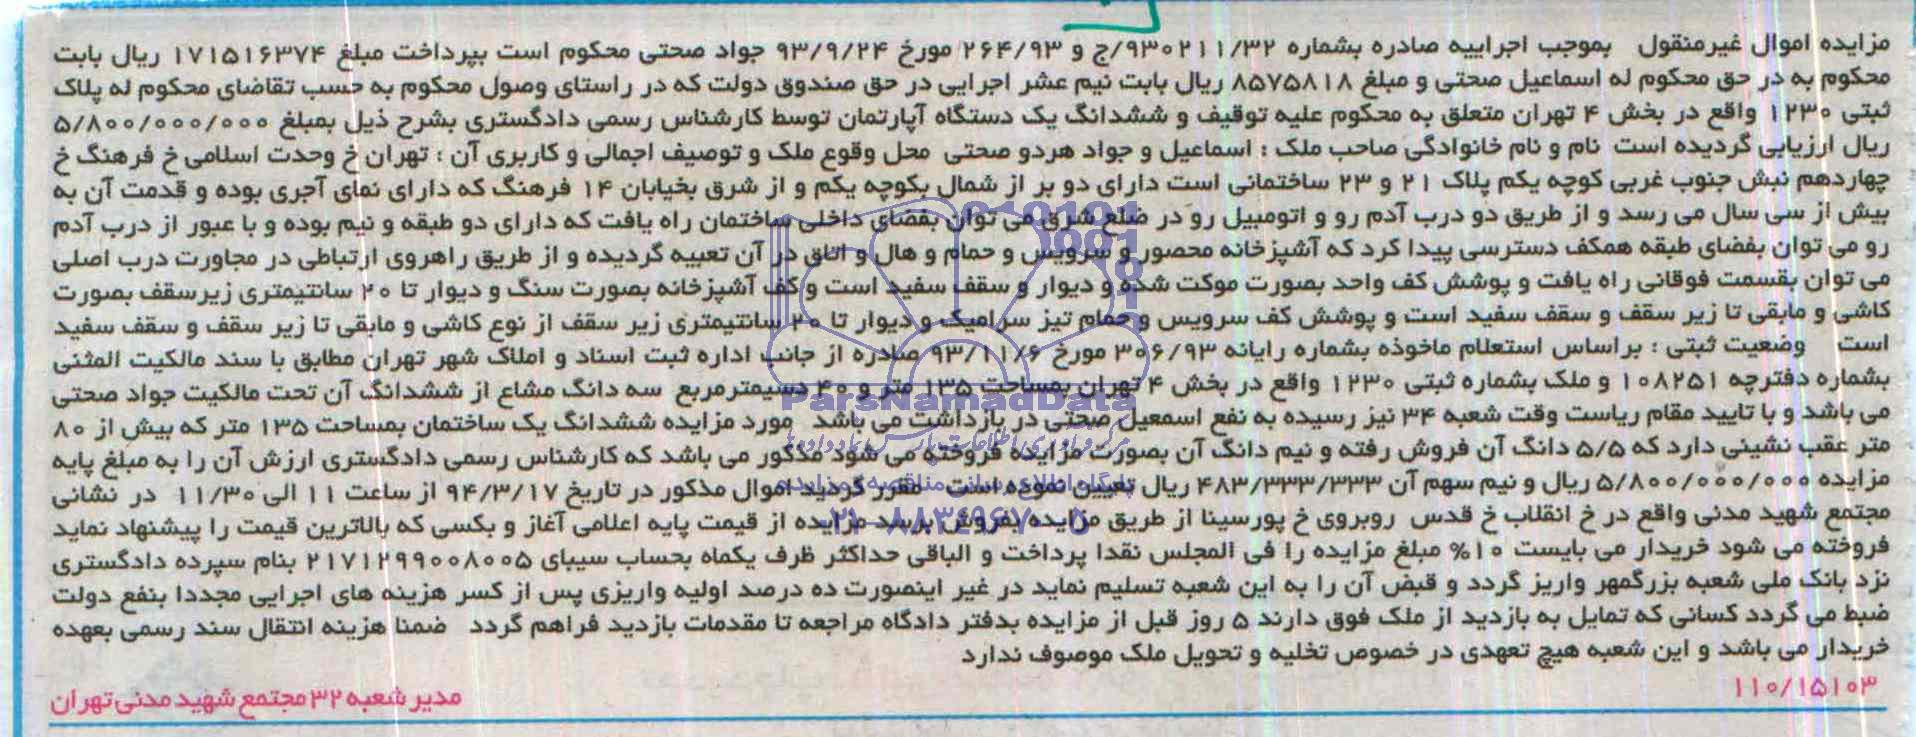 مزایده اموال غیرمنقول بموجب اجراییه صادره بشماره ۹۳۰۲۱۱/۳۲/ج و ۲۶۴/۹۳ مورخ ۹۳/۹/۲۴ جواد صحتی محکوم است بپرداخت مبلغ ۱۷۱۵۱۶۳۷۴ ریال بابت
محکوم به در حق محکوم له اسماعیل صحتی و مبلغ ۸۵۷۵۸۱۸ ریال بابت نیم عشر اجرایی در حق صندوق دولت که در راستای وصول محکوم به حسب تقاضای محکوم له پلاک
ثبتی ۱۲۳۰ واقع در بخش ۴ تهران متعلق به محکوم علیه توقیف و ششدانگ یک دستگاه آپارتمان توسط کارشناس رسمی دادگستری بشرح ذیل بمبلغ ۵/۸۰۰/۰۰۰/۰۰۰
ریال ارزیابی گردیده است نام و نام خانوادگی صاحب ملک : اسماعیل و جواد هردو صحتی محل وقوع ملک و توصیف اجمالی و کاربری آن : تهران خ وحدت اسلامی خ فرهنگ خ
چهاردهم نبش جنوب غربی کوچه یکم پلاک ۲۱ و ۲۳ ساختمانی است دارای دو بر از شمال بکوچه یکم و از شرق بخیابان ۱۴ فرهنگ که دارای نمای آجری بوده و قدمت آن به
بیش از سی سال می رسد و از طریق دو درب آدم رو و اتومبیل رو در ضلع شرق می توان بفضای داخلی ساختمان راه یافت که دارای دو طبقه و نیم بوده و با عبور از درب آدم
رو می توان بفضای طبقه همکف دسترسی پیدا کرد که آشپزخانه محصور و سرویس و حمام و هال و اتاق در آن تعبیه گردیده و از طریق راهروی ارتباطی در مجاورت درب اصلی
می توان بقسمت فوقانی راه یافت و پوشش کف واحد بصورت موکت شده و دیوار و سقف سفید است و کف آشپزخانه بصورت سنگ و دیوار تا ۲۰ سانتیمتری زیرسقف بصورت
کاشی و مابقی تا زیر سقف و سقف سفید است و پوشش کف سرویس و حمام تیز سرامیک و دیوار تا ۲۰ سانتیمتری زیر سقف از نوع کاشی و مابقی تا زیر سقف و سقف سفید
است وضعیت ثبتی : براساس استعلام ماخوذه بشماره رایانه ۳۰۶/۹۳ مورخ ۹۳/۱۱/۶ صادره از جانب اداره ثبت اسناد و املاک شهر تهران مطابق با سند مالکیت المثنی
بشماره دفترچه ۱۰۸۲۵۱ و ملک بشماره ثبتی ۱۲۳۰ واقع در بخش ۴ تهران بمساحت ۱۳۵ متر و ۴۰ دسیمترمربع سه دانگ مشاع از ششدانگ آن تحت مالکیت جواد صحتی
ParsNamadData
می باشد و با تایید مقام ریاست وقت شعبه ۳۴ نیز رسیده به نفع اسمعیل صحتی در بازداشت می باشد مورد مزایده ششدانگ یک ساختمان بمساحت ۱۳۵ متر که بیش از ۸۰
متر عقب نشینی دارد که ۵/۵ دانگ آن فروش رفته و نیم دانگ آن بصورت مزایده فروخته می شود مذکور می باشد که کارشناس رسمی دادگستری ارزش آن را به مبلغ پایه
مزایده ۵/۸۰۰/۰۰۰/۰۰۰ ریال و نیم سهم آن ۴۸۳/۳۳۳/۳۳۳ ریال تعیین نموده است مقرر گردید اموال مذکور در تاریخ ۹۴/۳/۱۷ از ساعت ۱۱ الی ۱۱/۳۰ در نشانی
مجتمع شهید مدنی واقع در خ انقلاب خ قدس روبروی خ پورسینا از طریق مزایده بفروش برسد مزایده از قیمت پایه اعلامی آغاز و بکسی که بالاترین قیمت را پیشنهاد نماید
فروخته می شود خریدار می بایست ۱۰% مبلغ مزایده را فی المجلس نقدا پرداخت و الباقی حداکثر ظرف یکماه بحساب سیبای ۲۱۷۱۲۹۹۰۰۸۰۰۵ بنام سپرده دادگستری
نزد بانک ملی شعبه بزرگمهر واریز گردد و قبض آن را به این شعبه تسلیم نماید در غیر اینصورت ده درصد اولیه واریزی پس از کسر هزینه های اجرایی مجددا بنفع دولت
ضبط می گردد کسانی که تمایل به بازدید از ملک فوق دارند ۵ روز قبل از مزایده بدفتر دادگاه مراجعه تا مقدمات بازدید فراهم گردد ضمنا هزینه انتقال سند رسمی بعهده
خریدار می باشد و این شعبه هیچ تعهدی در خصوص تخلیه و تحویل ملک موصوف ندارد
۱۱۰/۱۵۱۰۳
مدیر شعبه ۳۲ مجتمع شهید مدنی تهران